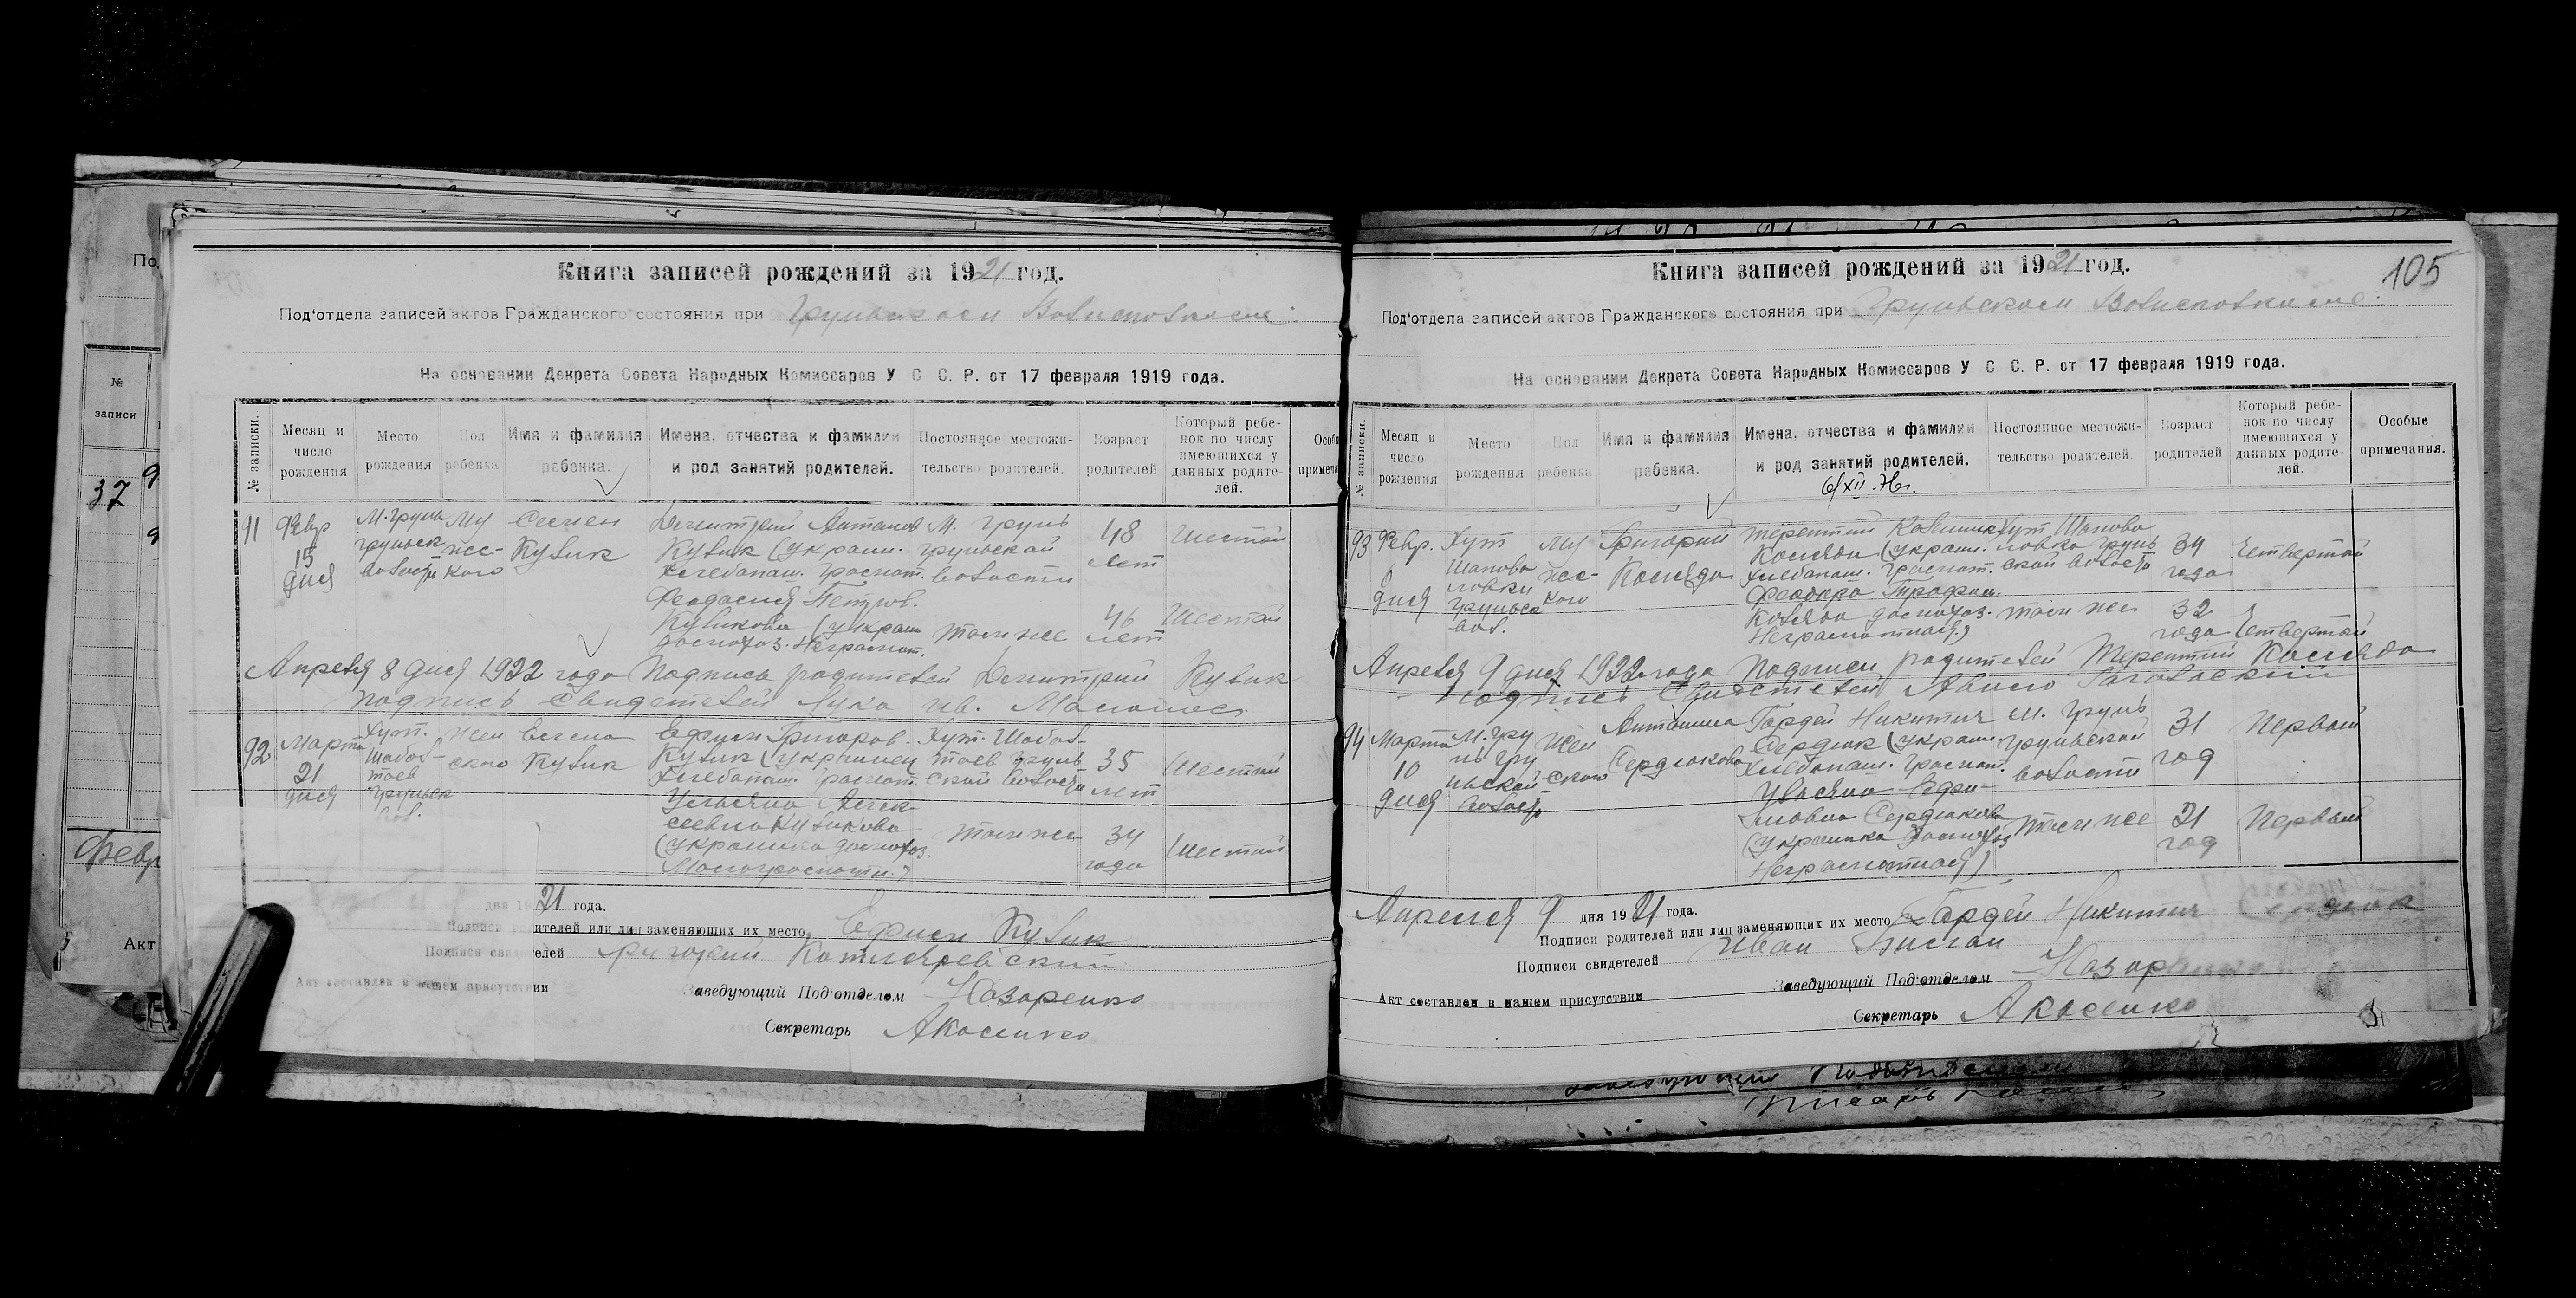 Книга записей рождений за 1921 год.
Под'отдела записей актов Гражданского состояния при Груньском Волисполкоме
На основании Декрета Совета Народных Комиссаров У С С. Р. от 17 февраля 1919 года.
№ записки.
Месяц и число рождения
Место рождения
Пол ребенка
Имя и фамилия ребенка.
Имена, отчества и фамилии и род занятий родителей.
Постоянное местожительство родителей.
Возраст родителей
Который ребенок по числу имеющихся у данных родителей.
91 Февр 15 дня
М. Грунь Груньск волости
Мужского
Семен Кулик
Дмитрий Антонов Кулик (украин. хлебопаш. Грамот.
М. Грунь Груньской волости
48 лет
Шестой
Феодосия Петров. Куликова (украин домохоз. Неграмот.
там же
46 лет
Шестой
Апреля 8 дня 1922 года Подпись родителей Дмитрий Кулик
Подпись свидетелей Лука
92 Марта 21 дня
Хут.
Груньск вол.
Женского
Кулик
Ефим Григоров. Кулик (украинец хлебопаш. грамот
Хут. Груньской волости
35 лет
Шестой
Ульяна Алексеевна Куликова (украинка домохоз. Малограмотн.)
там же
34 года
Шестой
дня 1921 года.
Подписи родителей или лиц заменяющих их место Ефим Кулик
Подписи свидетелей Григорий Котляревский
Акт составлен в нашем присутствии
Заведующий Под'отделом Назаренко
Секретарь
№ записи
37
Февр
Акт
Книга записей рождений за 1921 год.
105
Под'отдела записей актов Гражданского состояния при Груньском Волисполкоме
На основании Декрета Совета Народных Комиссаров У С С. Р. от 17 февраля 1919 года.
№ записки.
Месяц и число рождения
Место рождения
Пол ребенка
Имя и фамилия ребенка.
Имена, отчества и фамилии и род занятий родителей.
6/XII-76г.
Постоянное местожительство родителей.
Возраст родителей
Который ребенок по числу имеющихся у данных родителей.
Особые примечания.
93 Февр. 8 дня
Хут Шаповаловки Груньск вол.
Мужского
Григорий
Терентий (украин. хлебопаш. Грамот.
Хут Шаповаловка Груньской волости
34 года
Четвертой
домохоз. Неграмотная.)
там же
32 года
Четвертой
Апреля 9 дня 1922 года Подписи родителей Терентий
Подпись свидетелей
94 Марта 10 дня
М. Грунь Груньской волости
Женского
Антонина Сердюкова
Гордей Никитич Сердюк (украин хлебопаш. Грамот.
М. Грунь Груньской волости
31 год
Первый
Ульяна Ефимовна Сердюкова (украинка Домохоз Неграмотная)
там же
21 год
Первый
Апреля 9 дня 1921 года.
Подписи родителей или лиц заменяющих их место Гордей Никитич Сердюк
Подписи свидетелей Иван
Акт составлен в нашем присутствии
Заведующий Под'отделом Назаренко
Секретарь